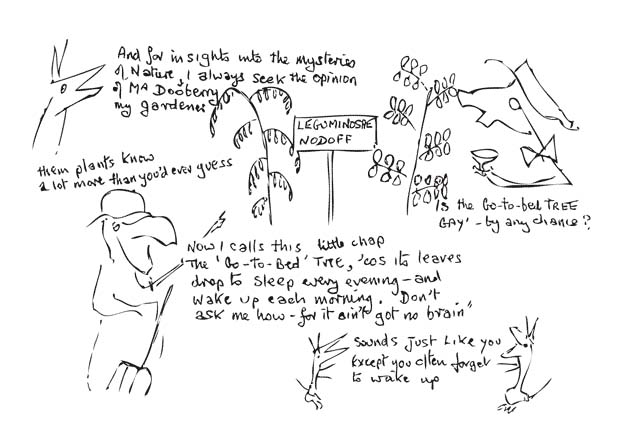 And for insights into the mysteries
of Nature, I always seek the opinion
of MA Dooberry
my gardener
LEGUMINOSAE
NODOFF
them plants know
a lot more than you'd ever guess
Is the Go-to-bed TREE
GAY' - by any chance?
Now I calls this little chap
The 'Go-To-Bed' TREE, 'cos its leaves
drop to sleep every evening - and
wake up each morning. Don't
ask me how - for it ain't got no brain"
Sounds just like you
Except you often forget
to wake up